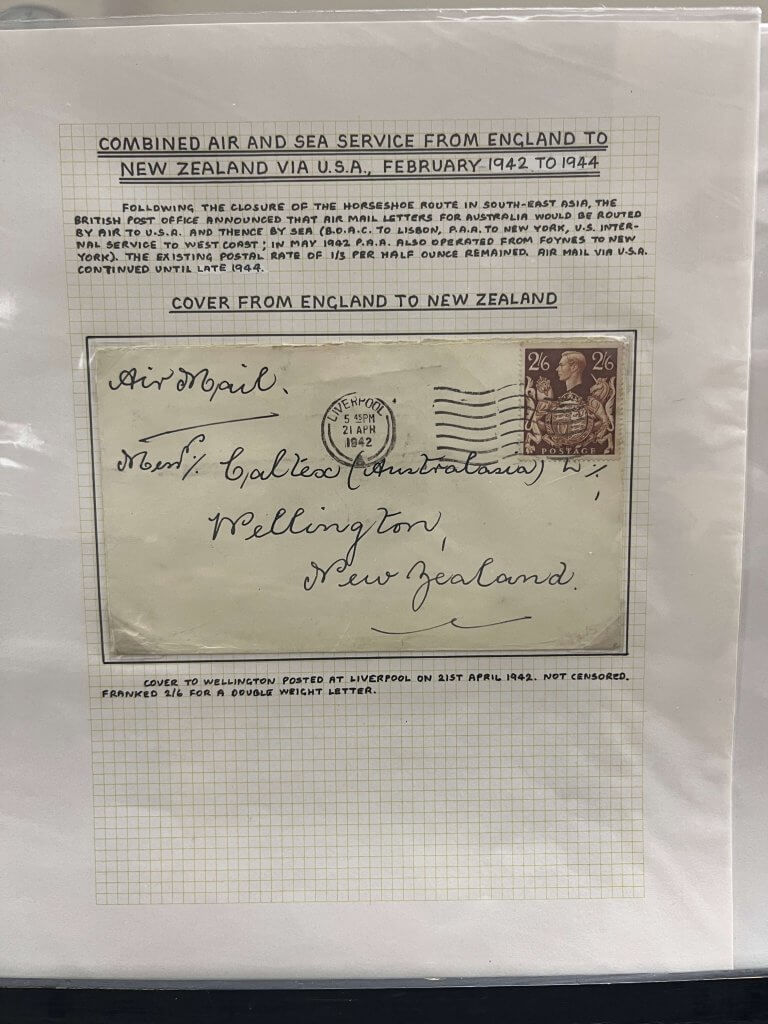 COMBINED AIR AND SEA SERVICE FROM ENGLAND TO
NEW ZEALAND VIA U.S.A., FEBRUARY 1942 TO 1944
FOLLOWING THE CLOSURE OF THE HORSESHOE ROUTE IN SOUTH-EAST ASIA, THE
BRITISH POST OFFICE ANNOUNCED THAT AIR MAIL LETTERS FOR AUSTRALIA WOULD BE ROUTED
BY AIR TO U.S.A. AND THENCE BY SEA (B.O.A.C. TO LISBON, P.A.A. TO NEW YORK, U.S. INTER-
NAL SERVICE TO WEST COAST; IN MAY 1942 P.A.A. ALSO OPERATED FROM FOYNES TO NEW
YORK). THE EXISTING POSTAL RATE OF 1/3 PER HALF OUNCE REMAINED. AIR MAIL VIA U.S.A.
CONTINUED UNTIL LATE 1944.
COVER FROM ENGLAND TO NEW ZEALAND
Air Mail.
2/6 2/6
POSTAGE
LIVERPOOL
5 45PM
21 APR
1942
Caltex (Australasia)
Wellington,
New Zealand.
COVER TO WELLINGTON POSTED AT LIVERPOOL ON 21ST APRIL 1942. NOT CENSORED.
FRANKED 2/6 FOR A DOUBLE WEIGHT LETTER.